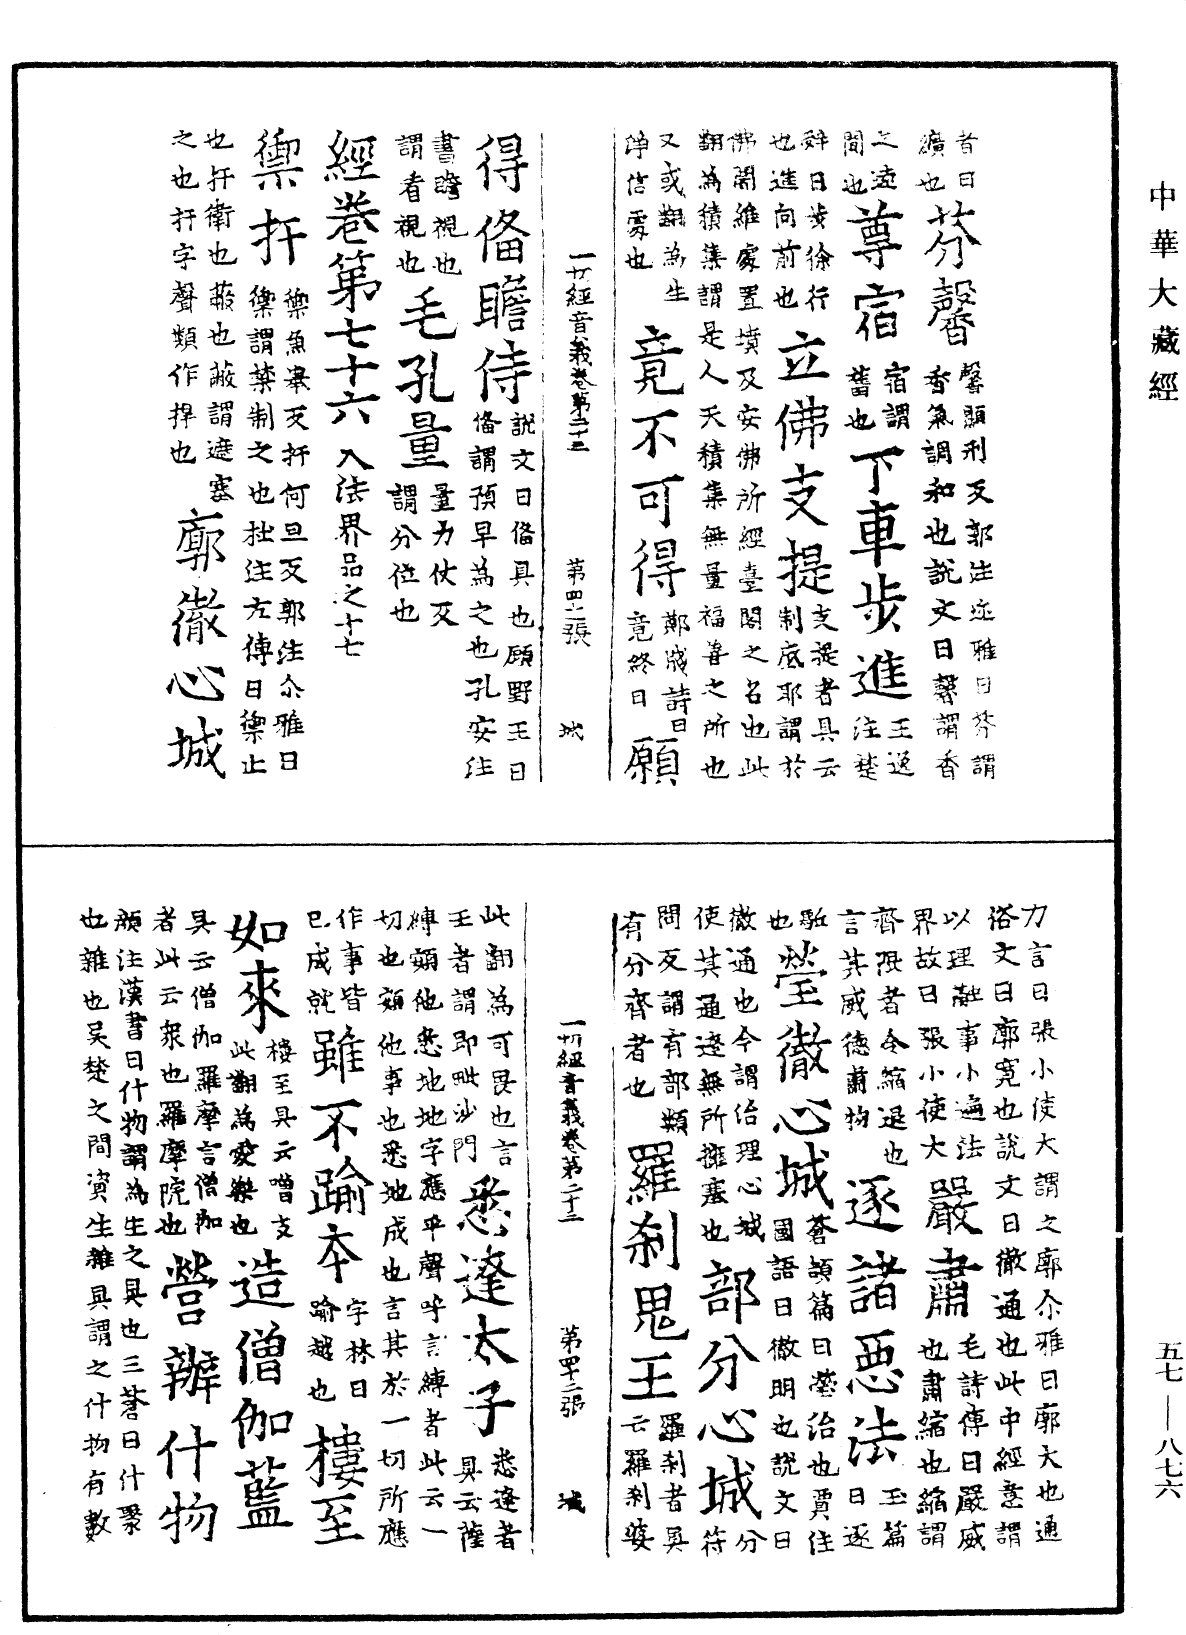 中華大藏經
者曰
纊也芬馨馨顯刑反郭注尒雅曰芬謂香氣調和也說文曰馨謂香
之遠
聞也尊宿宿謂舊也下車步進王逸注楚
辝曰步徐行
也進向前也立佛支提支提者具云制底耶謂於
佛闍維處置墳及安佛所經臺閣之名也此
翻為積集謂是人天積集無量福善之所也
又或翻為生
淨信處也竟不可得鄭牋詩曰竟終日願
一切經音義卷第二十三 第四十一張 城
得俻瞻侍說文曰俻具也顧野王曰俻謂預早為之也孔安注
書瞻視也
謂看視也毛孔量量力仗反謂分位也
經卷第七十六入法界品之十七
禦扞禦魚舉反扞何旦反郭注尒雅曰禦謂禁制之也杜注左傳曰禦止
也扞衛也蔽也蔽謂遮塞
之也扞字聲類作捍也廓徹心城
力言曰張小使大謂之廓尒雅曰廓大也通
俗文曰廓寬也說文曰徹通也此中經意謂
以理融事小遍法
界故曰張小使大嚴肅毛詩傳曰嚴威也肅縮也縮謂
齊限者令縮退也
言其威德肅物逐諸惡法玉篇曰逐
駈也瑩徹心城蒼頡篇曰瑩治也賈注國語曰徹明也說文曰
徹通也今謂治理心城
使其通達無所擁塞也部分心城分符
問反謂有部類
有分齊者也羅刹鬼王羅刹者具云羅刹婆
一切經音義卷第二十三 第四十二張 城
此翻為可畏也言
王者謂即毗沙門悉達太子悉達者具云薩
縛頞他悉地地字應平聲呼言縛者此云一
切也頞他事也悉地成也言其於一切所應
作事皆
已成就雖不踰本字林曰踰越也樓至
如來樓至具云嚕支此翻為愛樂也造僧伽藍
具云僧伽羅摩言僧伽
者此云衆也羅摩院也營辦什物
顏注漢書曰什物謂為生之具也三蒼曰什聚
也雜也吴楚之間資生雜具謂之什物有數
五七—八七六